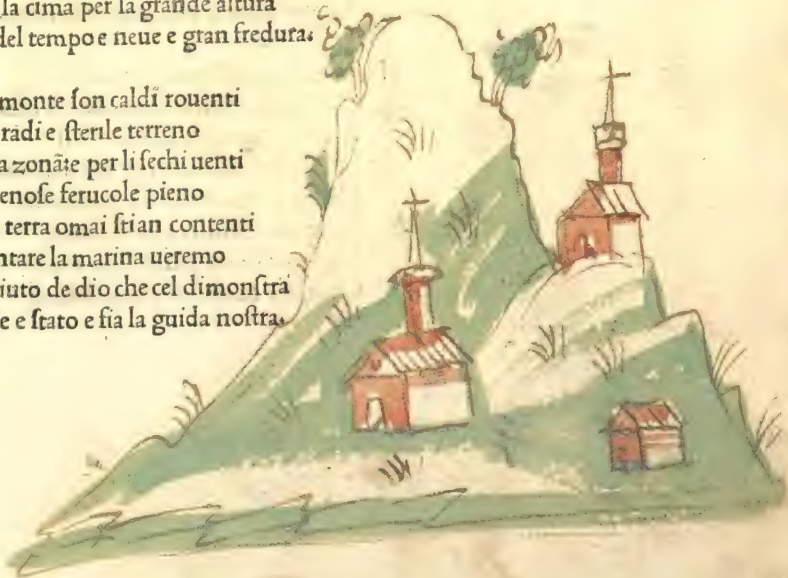 la cima per la grande altura
del tempo e neue e gran fredura.
monte ſon caldi rouenti
radi e ſterile terreno
a zonãte per li ſechi uenti
enoſe ferucole pieno
terra omai ſtian contenti
ntare la marina ueremo
iuto de dio che cel dimonſtra
e e ſtato e fia la guida noſtra.